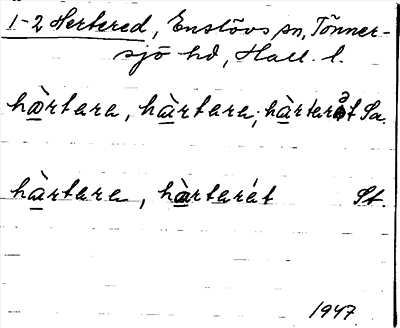 1-2 Hertered, Enslövs sn, Tönner-
sjö hd, Hall. l.
hàrtara, hàrtara, hàrtarət Sa.
hàrtara, hàrtarét St.
1947